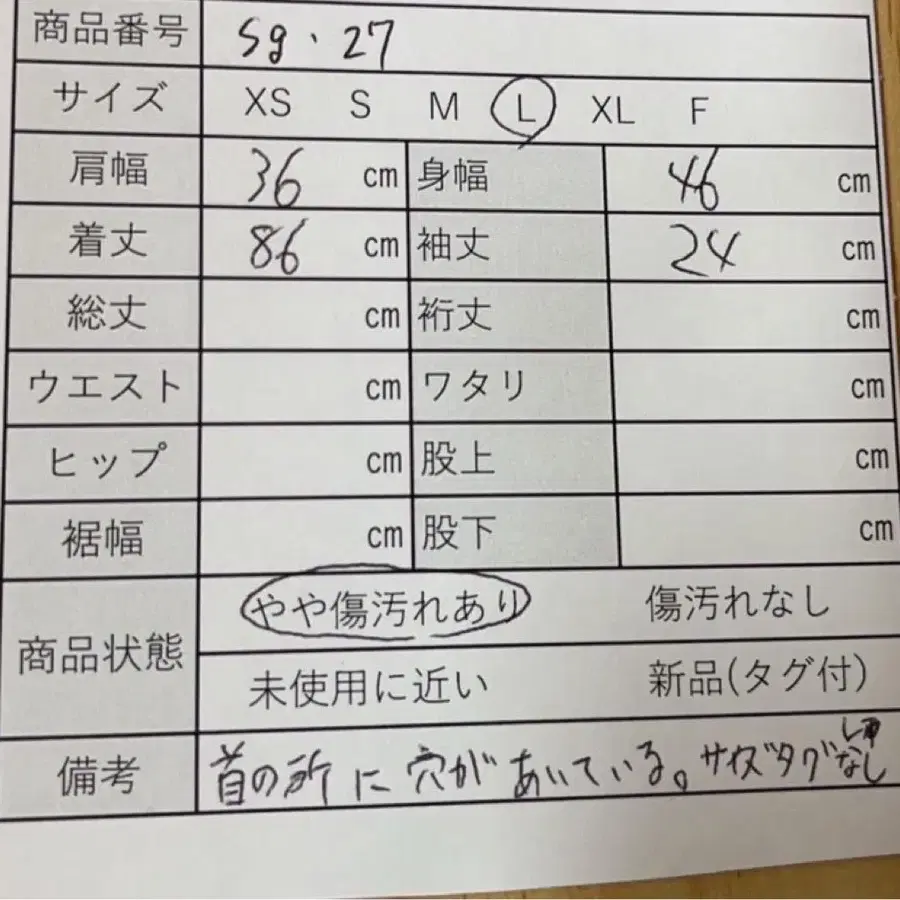 商品番号 sg・27
サイズ XS S M L XL F
肩幅 36 cm 身幅 46 cm
着丈 86 cm 袖丈 24 cm
総丈 cm 裄丈 cm
ウエスト cm ワタリ cm
ヒップ cm 股上 cm
裾幅 cm 股下 cm
商品状態 やや傷汚れあり 傷汚れなし
未使用に近い 新品(タグ付)
備考 首の所に穴があいている。サイズタグなし